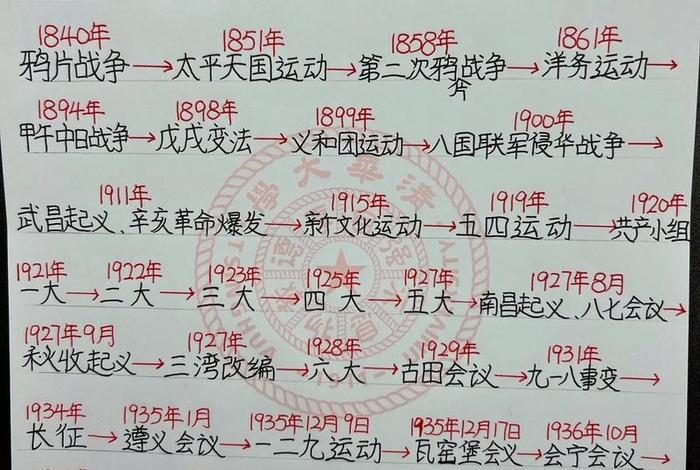 1840年 1851年 1858年 1861年
鸦片战争→太平天国运动→第二次鸦战争→洋务运动→
片
1894年 1898年 1899年 1900年
甲午中日战争→戊戌变法→义和团运动→八国联军侵华战争→
1911年 1915年 1919年 1920年
武昌起义、辛亥革命爆发→新文化运动→五四运动→共产小组
1921年 1922年 1923年 1925年 1927年 1927年8月
一大→二大→三大→四大→五大→南昌起义、八七会议→
1927年9月 1927年 1928年 1929年 1931年
秋收起义→三湾改编→六大→古田会议→九一八事变→
1934年 1935年1月 1935年12月9日 1935年12月17日 1936年10月
长征→遵义会议→一二九运动→瓦窑堡会义→会宁会议→